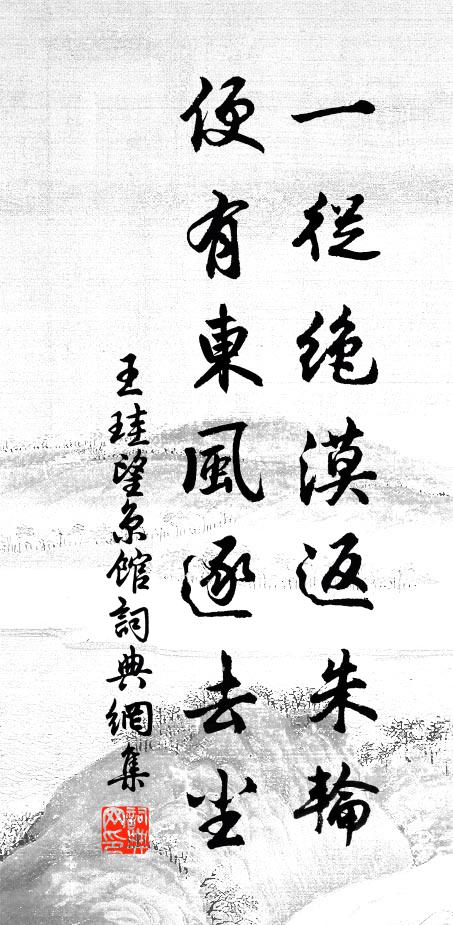 一從絶漠返朱輪
便有東風逐去尘
王珪望京館詞典網集